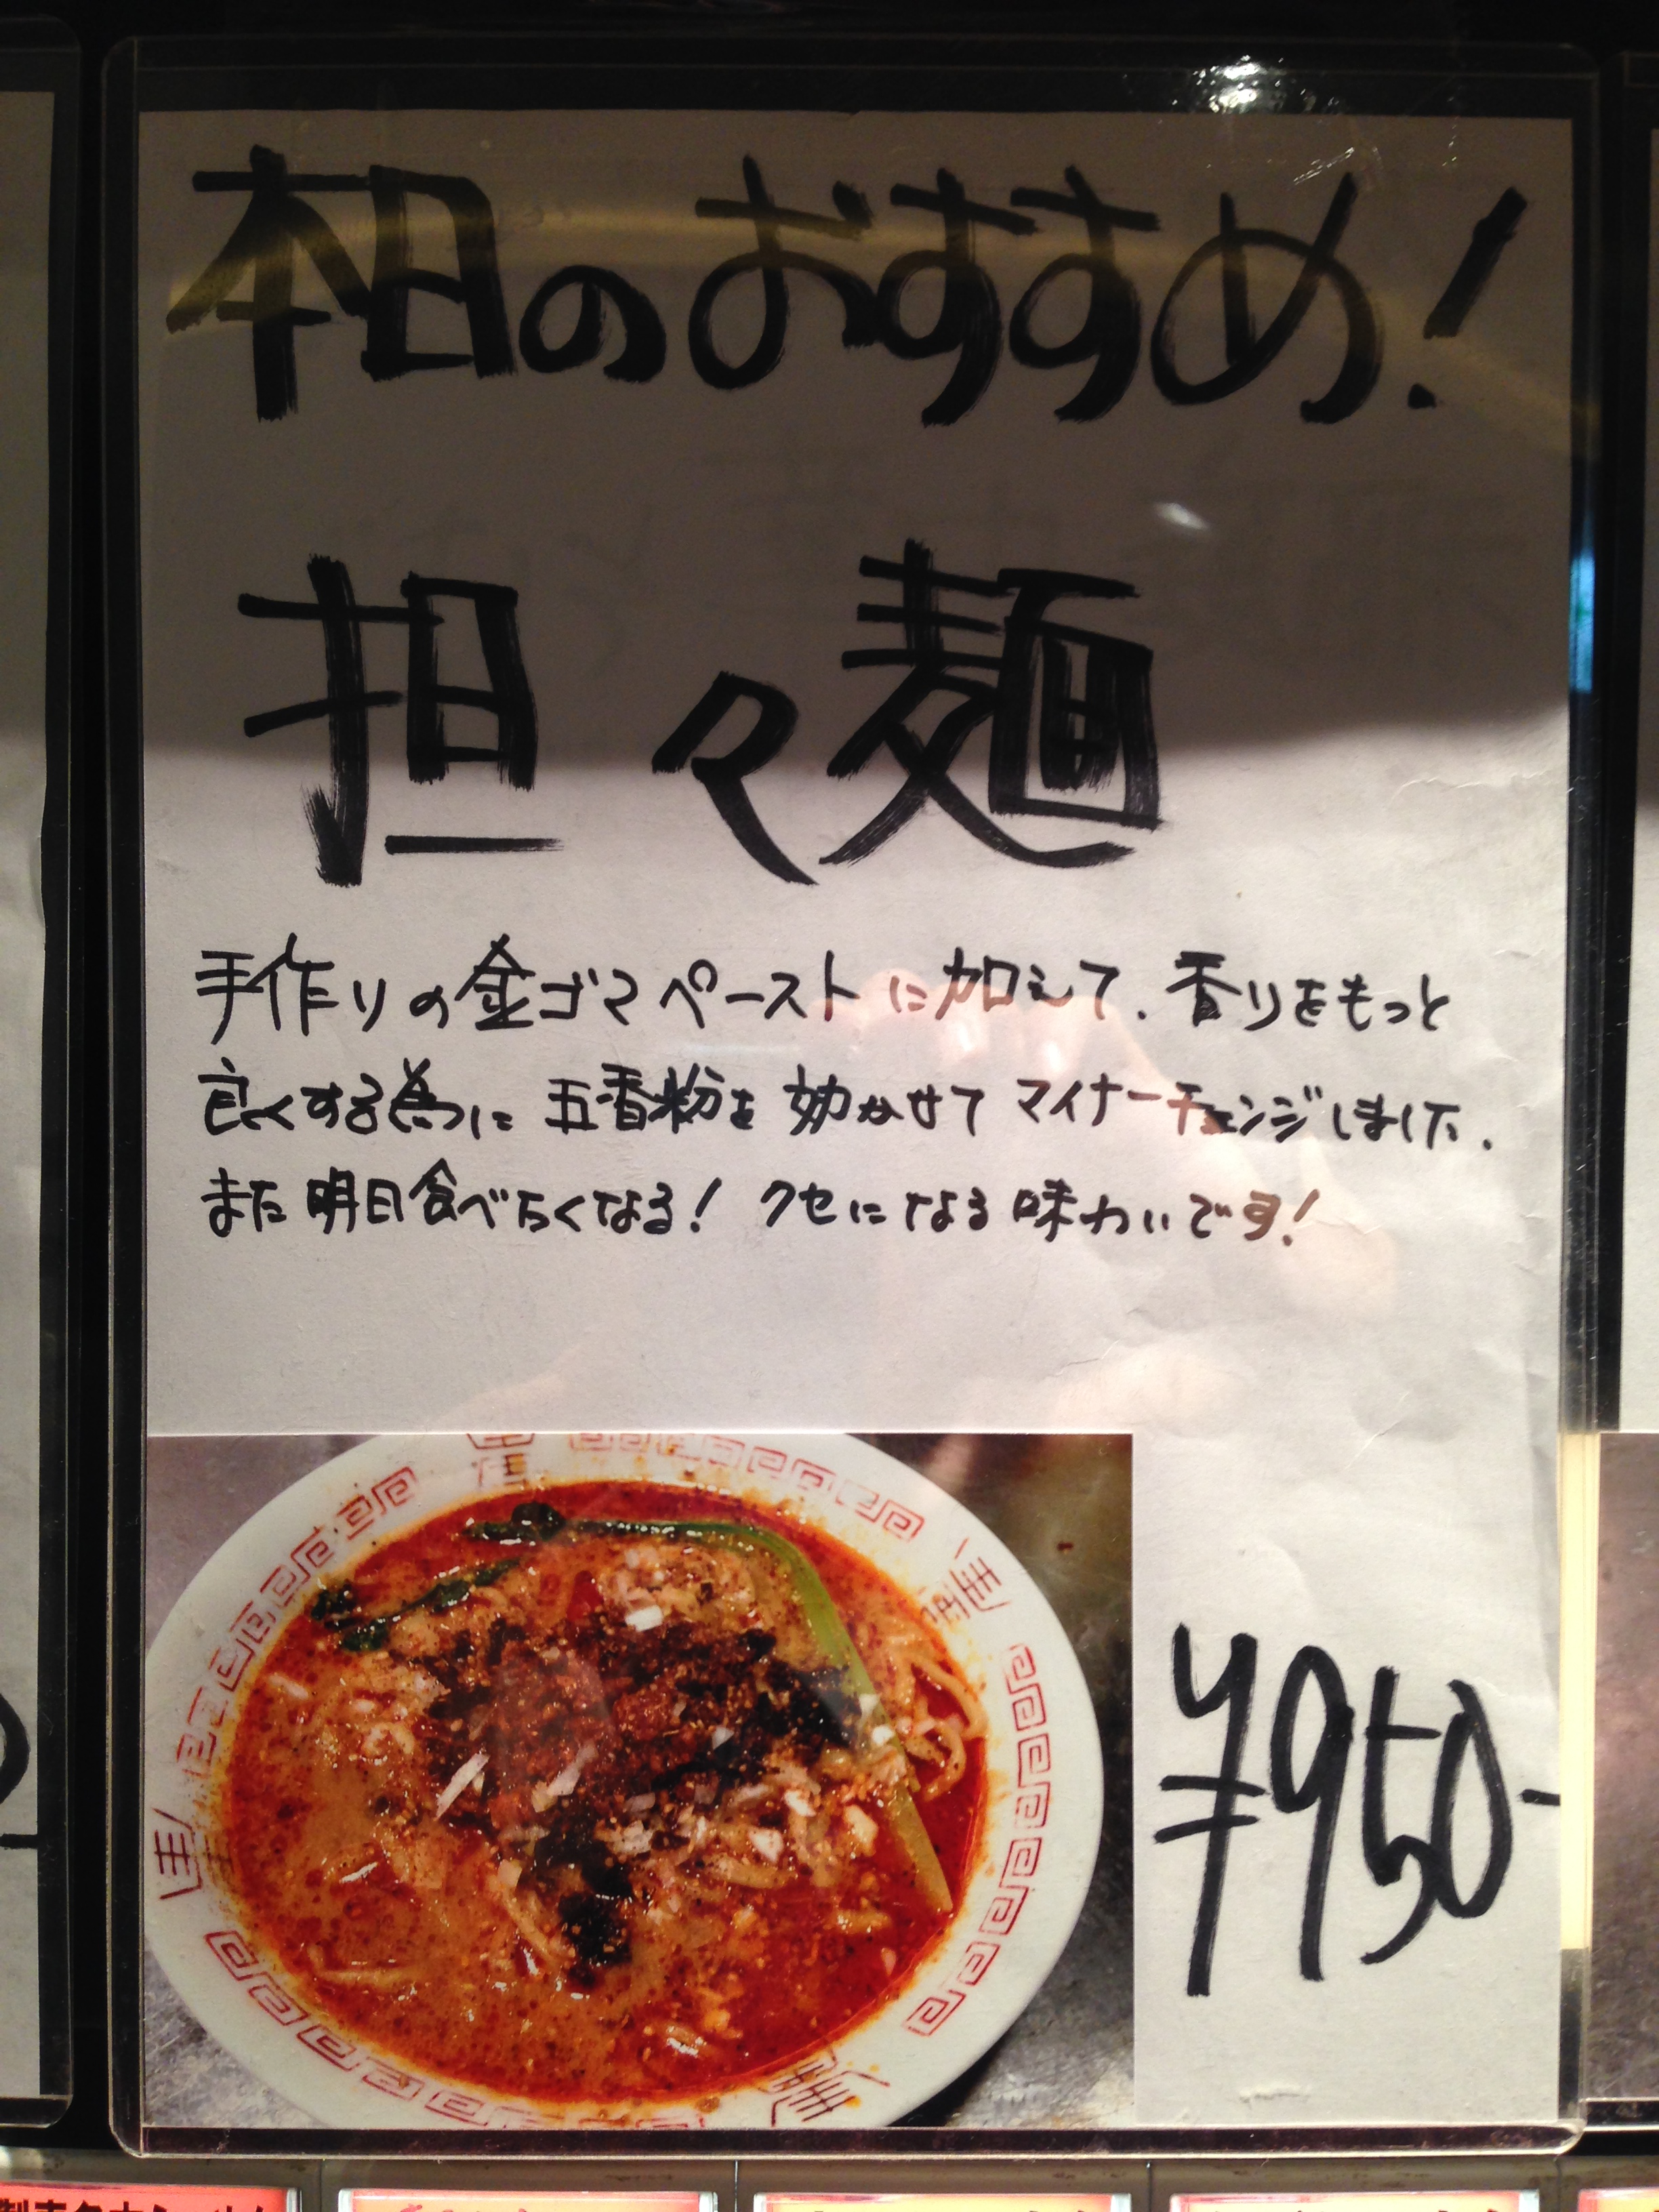 本日のおすすめ!
担々麺
手作りの金ゴマペーストに加えて、香りをもっと
良くする為に五香粉を効かせてマイナーチェンジしました。
また明日食べたくなる! クセになる味わいです!
¥950-